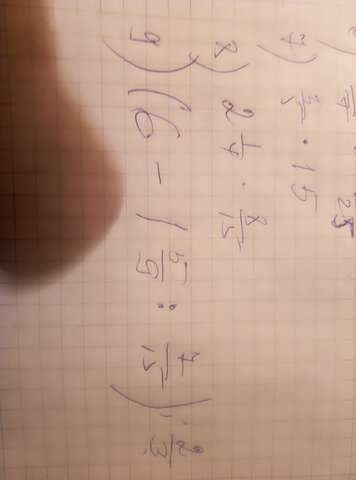 7) 3/5 · 15
8) 2 1/4 · 8/15
9) (6 - 1 5/9 : 7/15) : 2/3